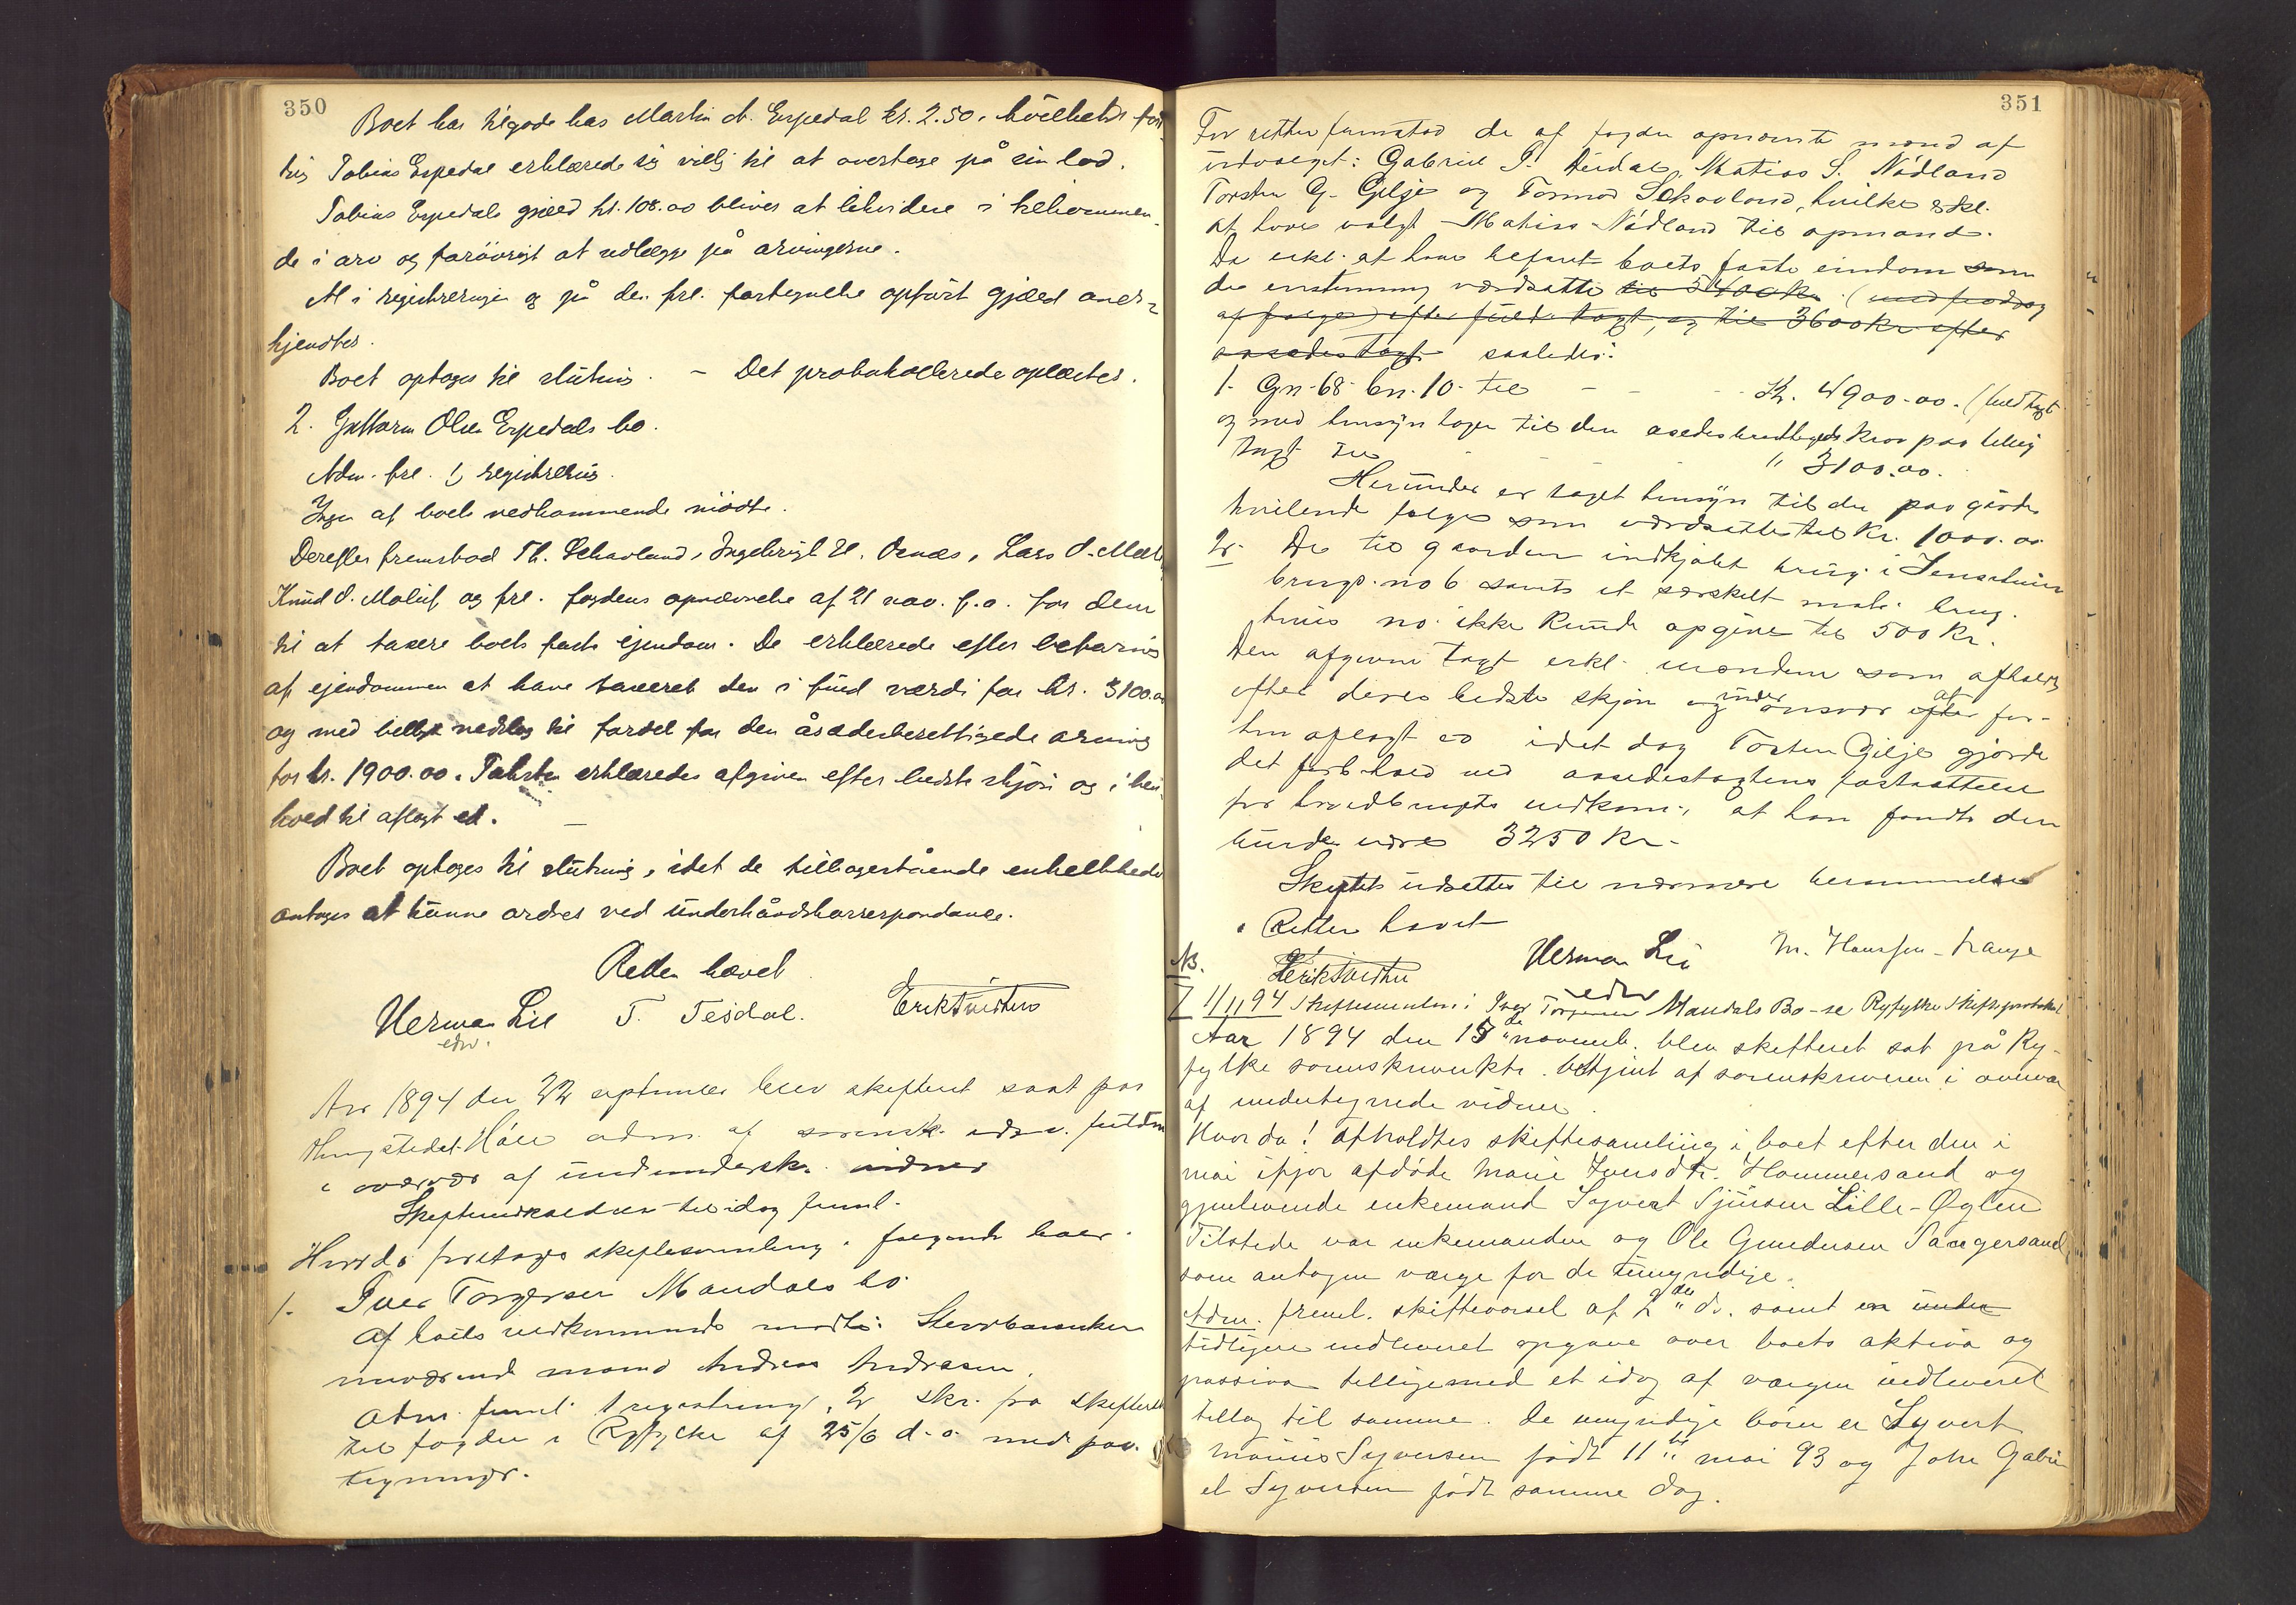 350
Boet har tilgode hos Martin A. Espedal kr. 2.50, hvilket
Tobias Espedal erklærede sig villig til at overtage på sin lod.
Tobias Espedals gjæld kr. 108.00 bliver at likvidere i tilkommen-
de i arv og forövrigt at udlægge på arvingerne.
Al i registreringen og på den frl. fortegnelse opfört gjæld aner-
kjendtes.
Boet optoges til slutning. - Det protokollerede oplæstes.
2. Guttorm Olsen Espedals bo.
Adm. frl. 1) registrering.
Ingen af boets vedkommende mödte.
Derefter fremstod Th. Schavland, Ingebrigt H. Osnæs, Lars O. Mæle
Knud O. Molaug og frl. fogdens opnævnelse af 21 nov. f.a. for dem
til at taxere boets faste ejendom. De erklærede efter befaring
af ejendommen at have taxeret den i fuld værdi for kr. 3100.00
og med billigt nedslag til fordel for den åsædesberettigede arving
for kr. 1900.00. Taksten erklæredes afgiven efter bedste skjön og i hen-
hold til aflagt ed.
Boet optoges til slutning, idet de tilbagestående enkeltheder
antoges at kunne ordnes ved underhåndskorrespondance.
Retten hævet
Herman Lie T. Tesdal. Erik Tveithers
edv.
Aar 1894 den 22 september blev skifteret sat paa
thingstedet Häle adm. af sorensk. edsv. fuldm
i overvær af undundersk. vidner
Skifteindkaldelsen til idag freml.
Hvorda foretoges skiftesamling i følgende boer.
1. Iver Torgersen Mandals bo.
Af boets vedkommende mødte: Stervboenken
nuværend mand Andreas Andreasen.
Adm. freml. 1 registrering, 2 skr. fra skifteret
til fogden i Ryfylke af 25/6 d.a. med paa-
tegninger.
351
For retten fremstod de af fogden opnævnte mænd af
udvalget: Gabriel P. Aadal, Matias S. Nådland
Torsten G. Gilje og Tormod Schavland, hvilke erkl.
at have valgt Matias Nådland til opmand.
De erkl. at have befaret boets faste eiendom som
de enstemmig værdsatte til 5400 Kr. (med fradrag
af folge) efter fuld taxt, og til 3600 Kr efter
aasædestaxt saaledes:
1. Gn. 68 bn. 10 til - - - Kr. 4900.00. (fuld taxt
og med hensyn tagen til den aasædesberettigedes krav paa billig
taxt til " 3100.00.
Herunder er taget hensyn til den paa gården
hvilende følge som værdsættes til Kr. 1000.00
2. De til gaarden indkjøbte brug i
brugs no 6 samt et særskilt matr. brug.
hvis no. ikke kunde opgives til 500 Kr.
Den afgivne taxt erkl. mændene som afholdt
efter deres bedste skjøn og under ansvar efter af for-
hen aflagt ed idet dog Torsten Gilje gjorde
det forbehold ved aasædestaxtens fastsættelse
for hovedbrugets vedkom., at han fandt den
burde være 3250 Kr.
Skiftet udsættes til nærmere berammelse
Retten hævet
Herman Lie M. Hanssen-Hauge
Erik Tveither
edsv
NB. 1/11 94 Skiftesamlen i Iver Torgersen Mandals Bo - se Ryfylke Skifteprotokol
Aar 1894 den 15de novemb. blev skifteret sat på Ry-
fylke sorenskriverktr. betjent af sorenskriveren i overvær
af undertegnede vidner.
Hvorda! afholdtes skiftesamling i boet efter den i
mai ifjor afdöde Marie Iversdtr. Hammersand og
gjenlevende enkemand Syvert Sjursen Lille-Øglen
Tilstede var enkemanden og Ole Gundersen Saugersand,
som antagen værge for de umyndige.
Adm. freml. skiftevarsel af 2den ds. samt en under
tidligere indleveret opgave over boets aktiva og
passiva tilligemed et idag af værgen indleveret
tillæg til samme. De umyndige børn er Syvert
Marius Syversen född 11te mai 93 og John Gabri-
el Syversen födt samme dag.